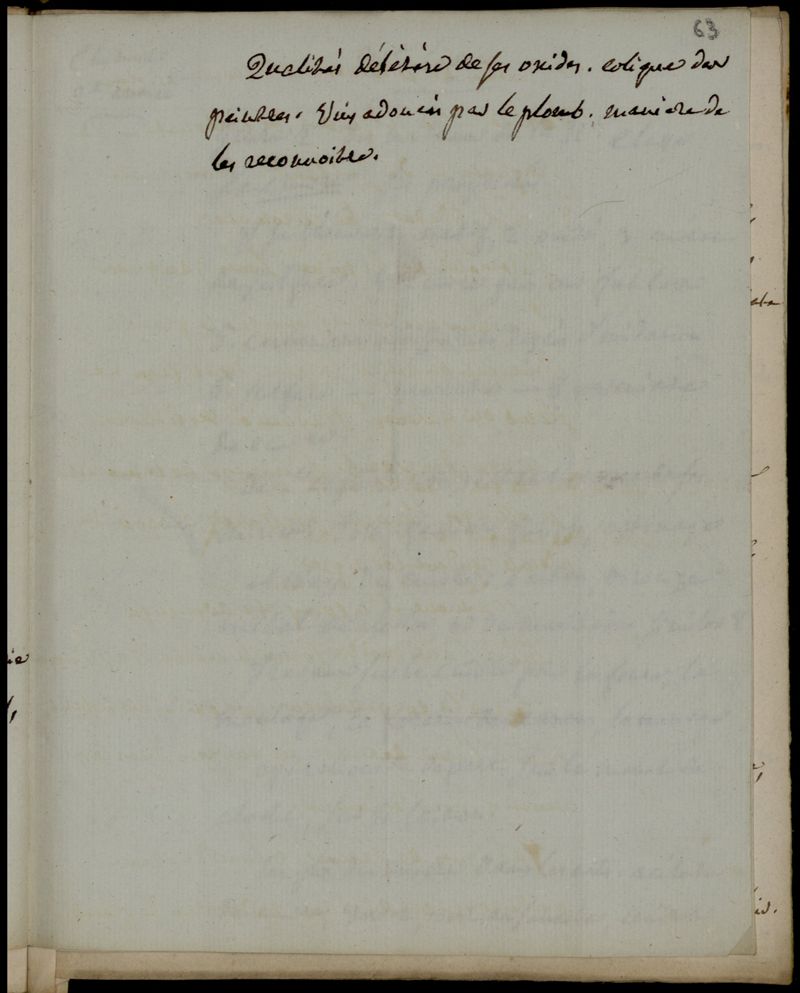 63
Qualités délétère de ses oxides. colique des
peintres. Vins adoucis par le plomb. maniere de
les reconnoitre.